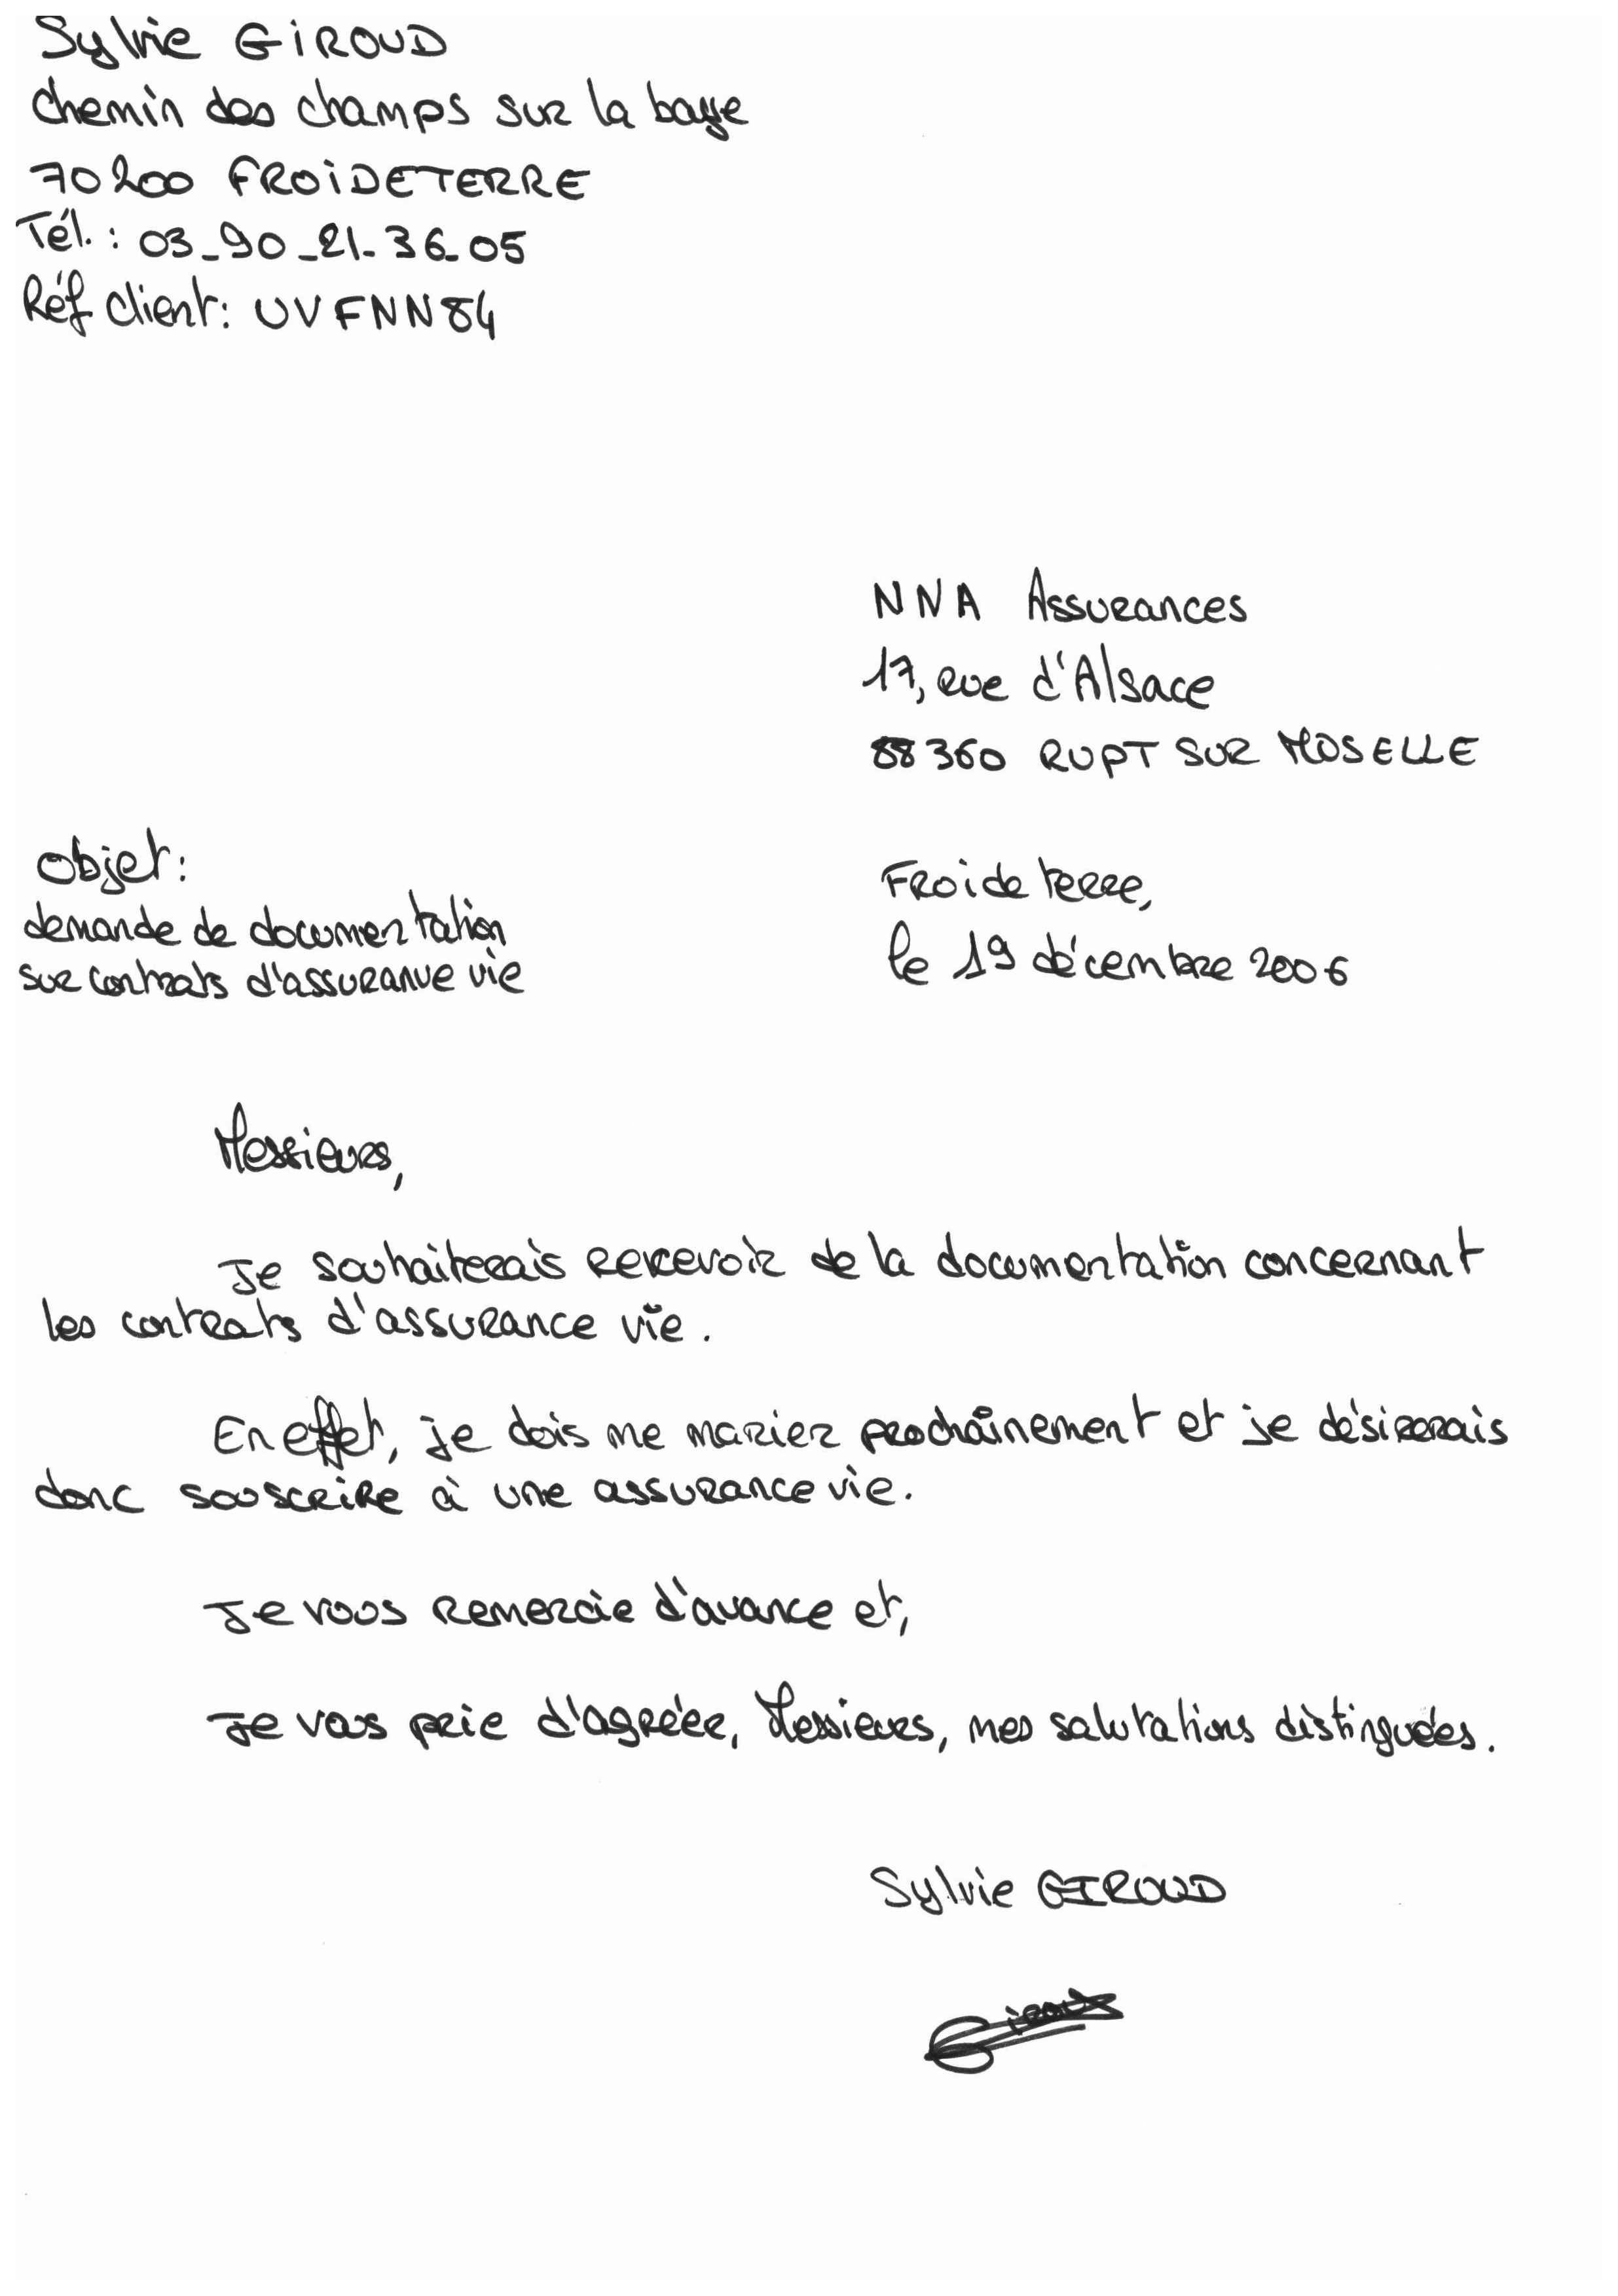 Sylvie GIROUD
chemin des champs sur la baye
70200 FROIDETERRE
Tél. : 03_90_21_36_05
Réf client : UVFNN84
NNA Assurances
17, rue d'Alsace
88360 RUPT SUR MOSELLE
Objet :
demande de documentation
sur contrats d'assuranve vie
Froideterre,
le 19 décembre 2006
Messieurs,
Je souhaiterais recevoir de la documentation concernant
les contrats d'assurance vie.
En effet, je dois me marier prochainement et je désirerais
donc souscrire à une assurance vie.
Je vous remercie d'avance et,
Je vous prie d'agréer, Messieurs, mes salutations distinguées.
Sylvie GIROUD